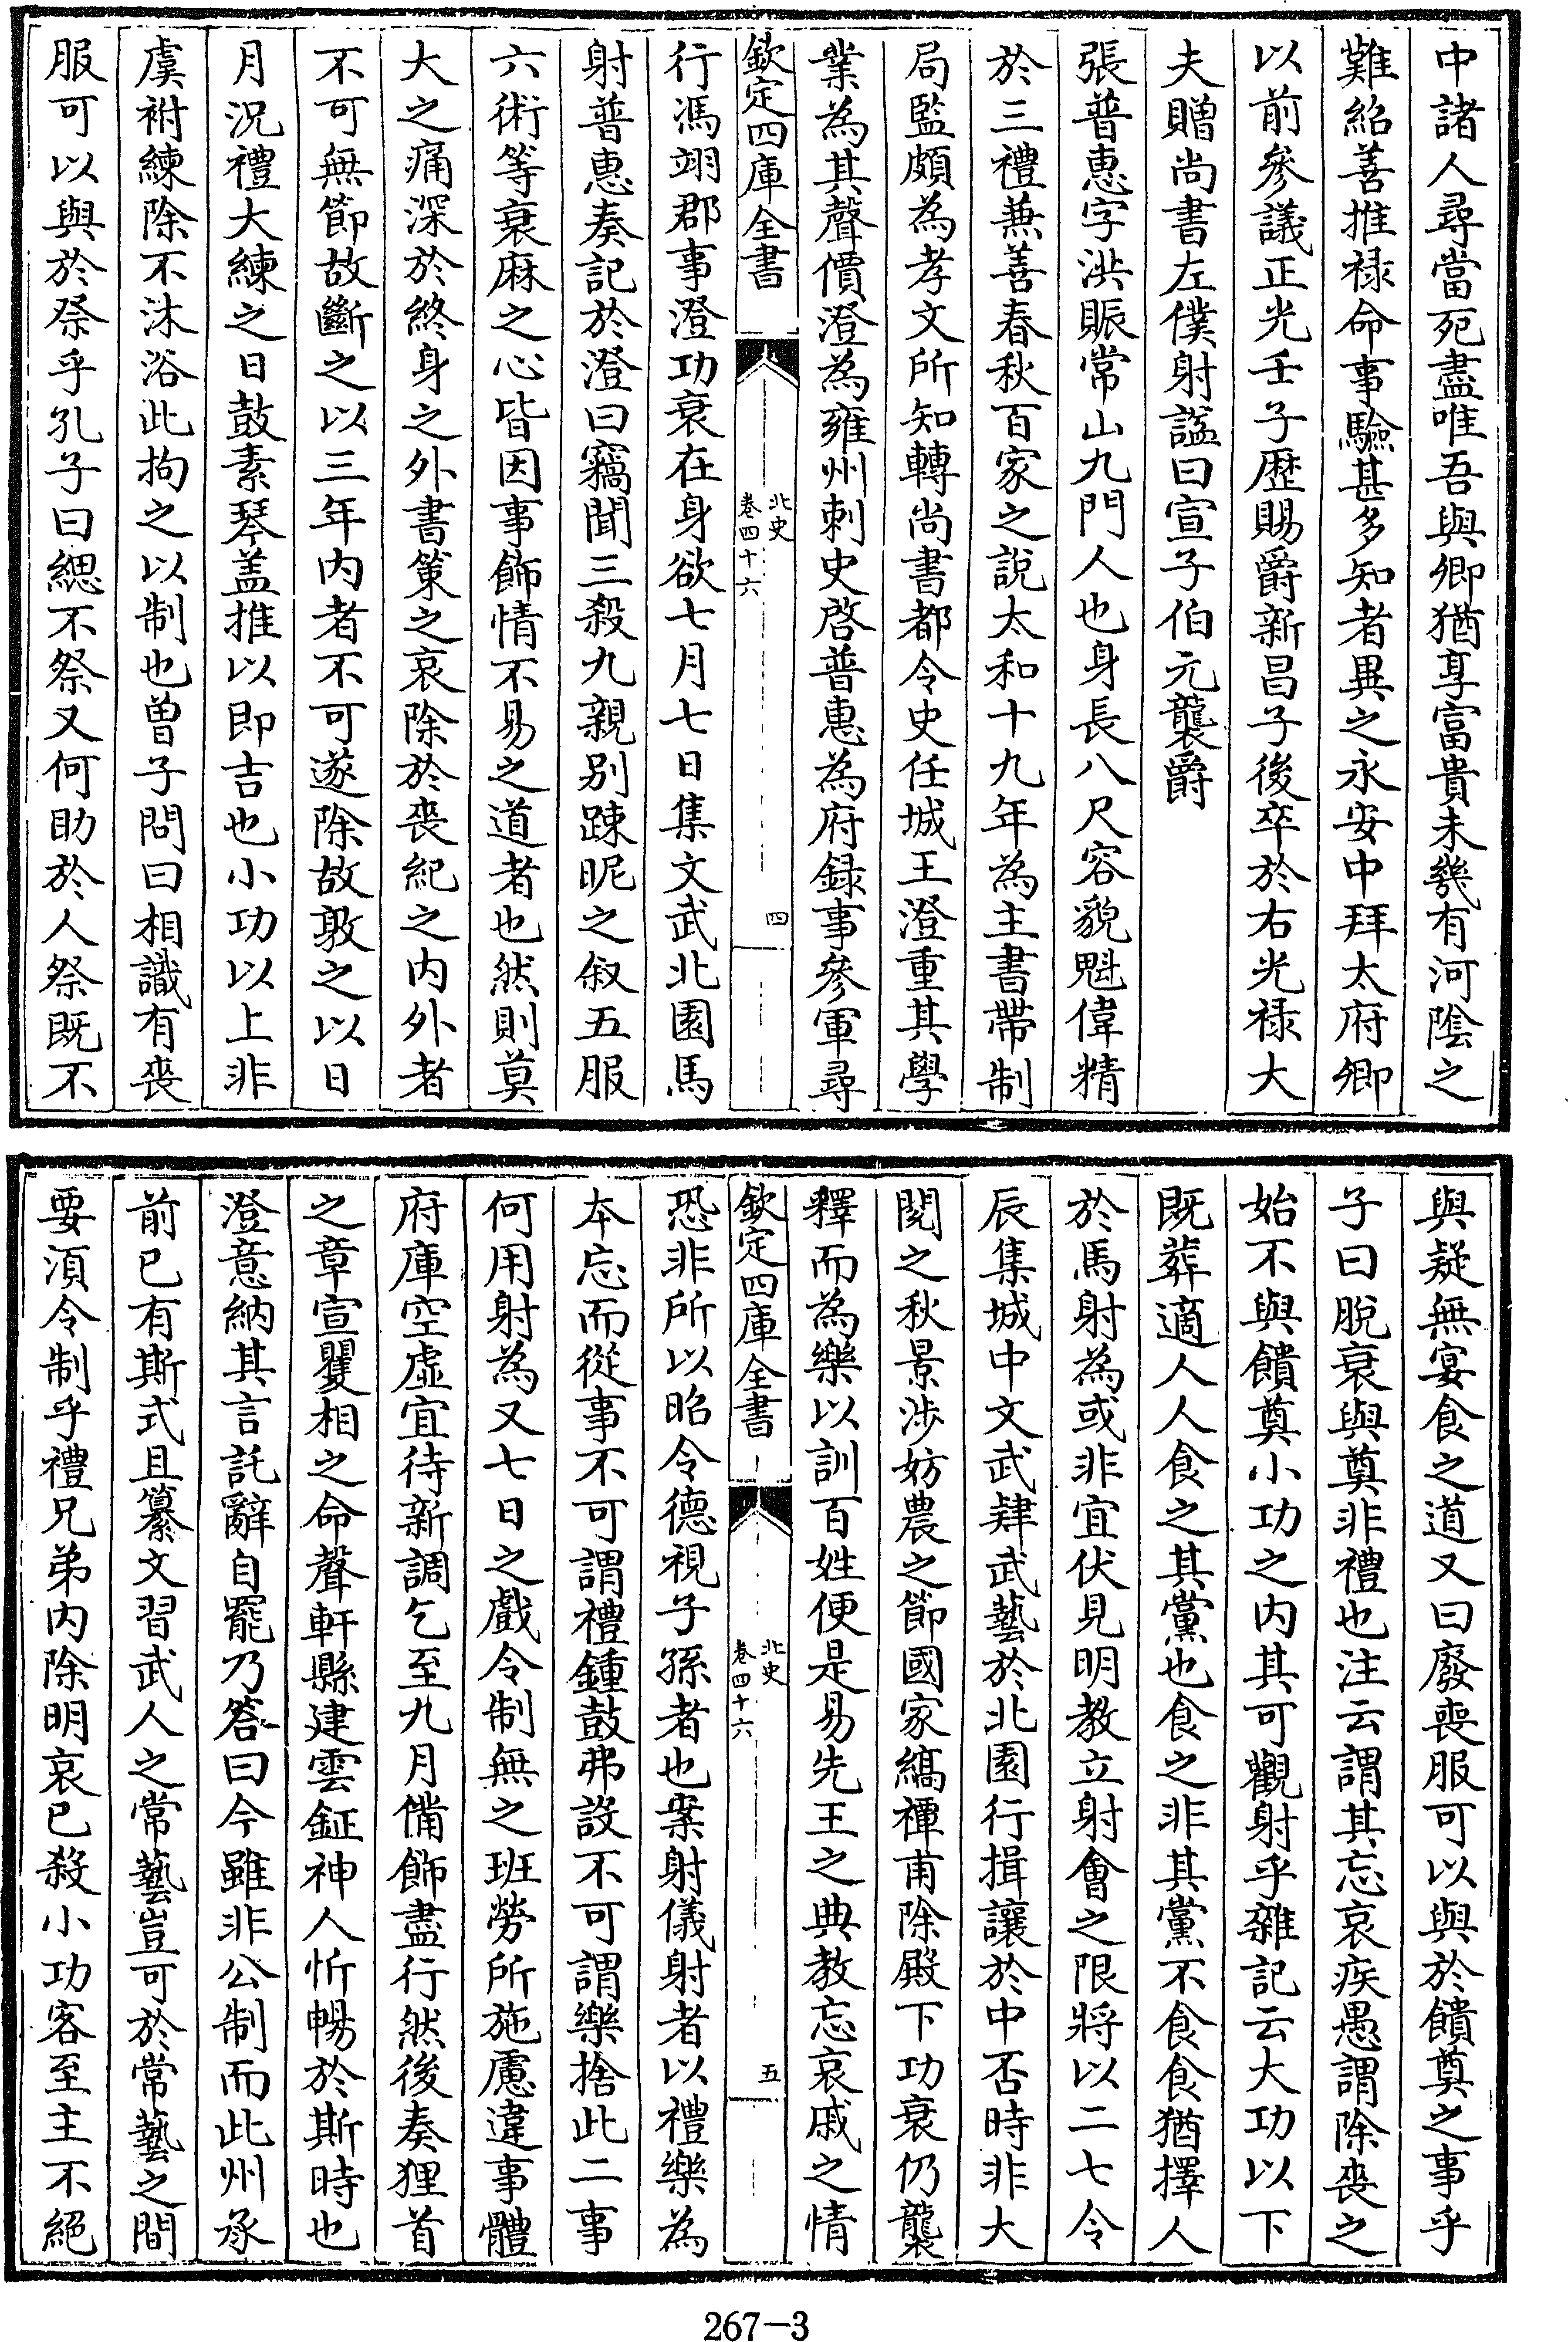 中諸人尋當死盡唯吾與卿猶享富貴未幾有河陰之
難紹善推禄命事驗甚多知者異之永安中拜太府卿
以前參議正光壬子歴賜爵新昌子後卒於右光禄大
夫贈尚書左僕射諡曰宣子伯元襲爵
張普惠字洪賑常山九門人也身長八尺容貌魁偉精
於三禮兼善春秋百家之説太和十九年為主書帶制
局監頗為孝文所知轉尚書都令史任城王澄重其學
業為其聲價澄為雍州刺史啓普惠為府録事參軍尋
欽定四庫全書
北史
卷四十六
四
行馮翊郡事澄功衰在身欲七月七日集文武北園馬
射普惠奏記於澄曰竊聞三殺九親别踈昵之叙五服
六術等衰麻之心皆因事飾情不易之道者也然則莫
大之痛深於終身之外書策之哀除於喪紀之内外者
不可無節故斷之以三年内者不可遂除故敦之以日
月況禮大練之日鼓素琴盖推以即吉也小功以上非
虞祔練除不沐浴此拘之以制也曽子問曰相識有喪
服可以與於祭乎孔子曰緦不祭又何助於人祭既不
與疑無宴食之道又曰廢喪服可以與於饋奠之事乎
子曰脱衰與奠非禮也注云謂其忘哀疾愚謂除喪之
始不與饋奠小功之内其可觀射乎雜記云大功以下
既葬適人人食之其黨也食之非其黨不食食猶擇人
於馬射為或非宜伏見明教立射會之限將以二七令
辰集城中文武肄武藝於北園行揖讓於中否時非大
閱之秋景涉妨農之節國家縞禫甫除殿下功衰仍襲
釋而為樂以訓百姓便是易先王之典教忘哀戚之情
欽定四庫全書
北史
卷四十六
五
恐非所以昭令德視子孫者也案射儀射者以禮樂為
本忘而從事不可謂禮鍾鼓弗設不可謂樂捨此二事
何用射為又七日之戲令制無之班勞所施慮違事體
府庫空虚宜待新調乞至九月備飾盡行然後奏狸首
之章宣矍相之命聲軒縣建雲鉦神人忻暢於斯時也
澄意納其言託辭自罷乃答曰今雖非公制而此州承
前已有斯式且纂文習武人之常藝豈可於常藝之間
要湏令制乎禮兄弟内除明哀已殺小功客至主不絶
267-3